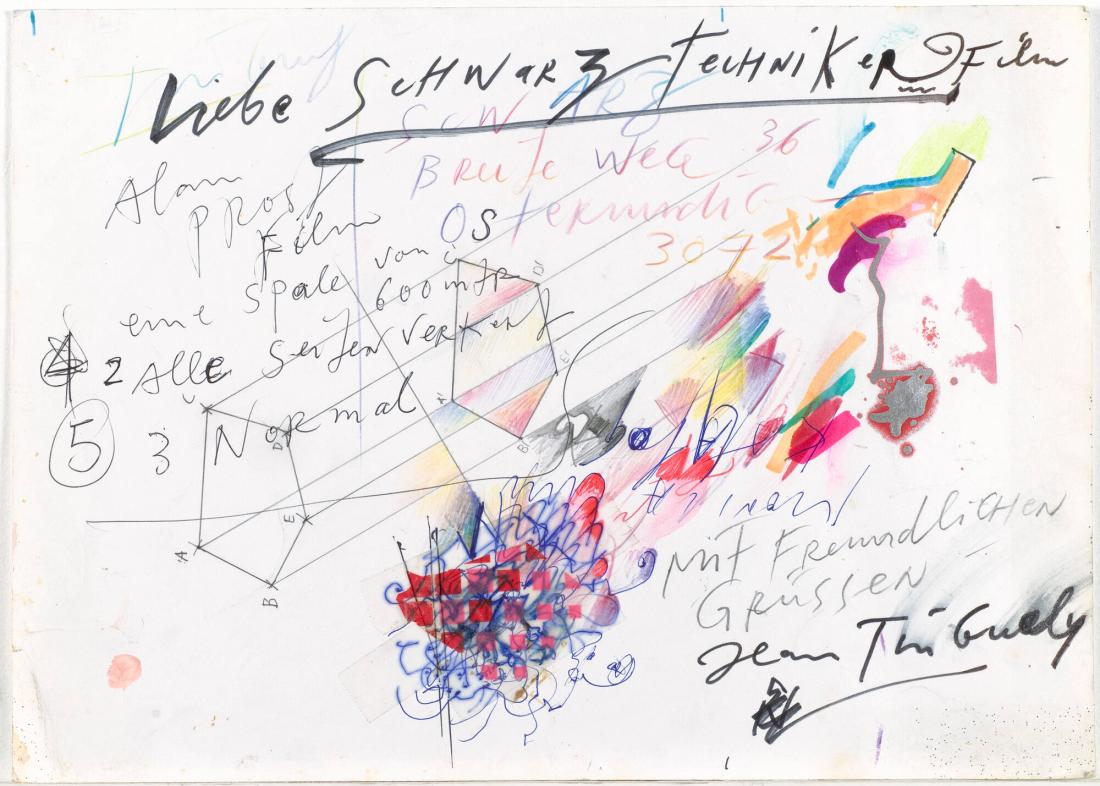 Liebe Schwarz Techniker Film
SCHWARZ
Breite Weg 36
Ostermundig
3072
Alain
Prost
Film
eine Spale von
600 mtr
2 Alle Seiten Verkert
5 3 Normal
D
E
A
B
D1
E1
A1
B1
Mit Freundlichen
Grüssen
Jean Tinguely